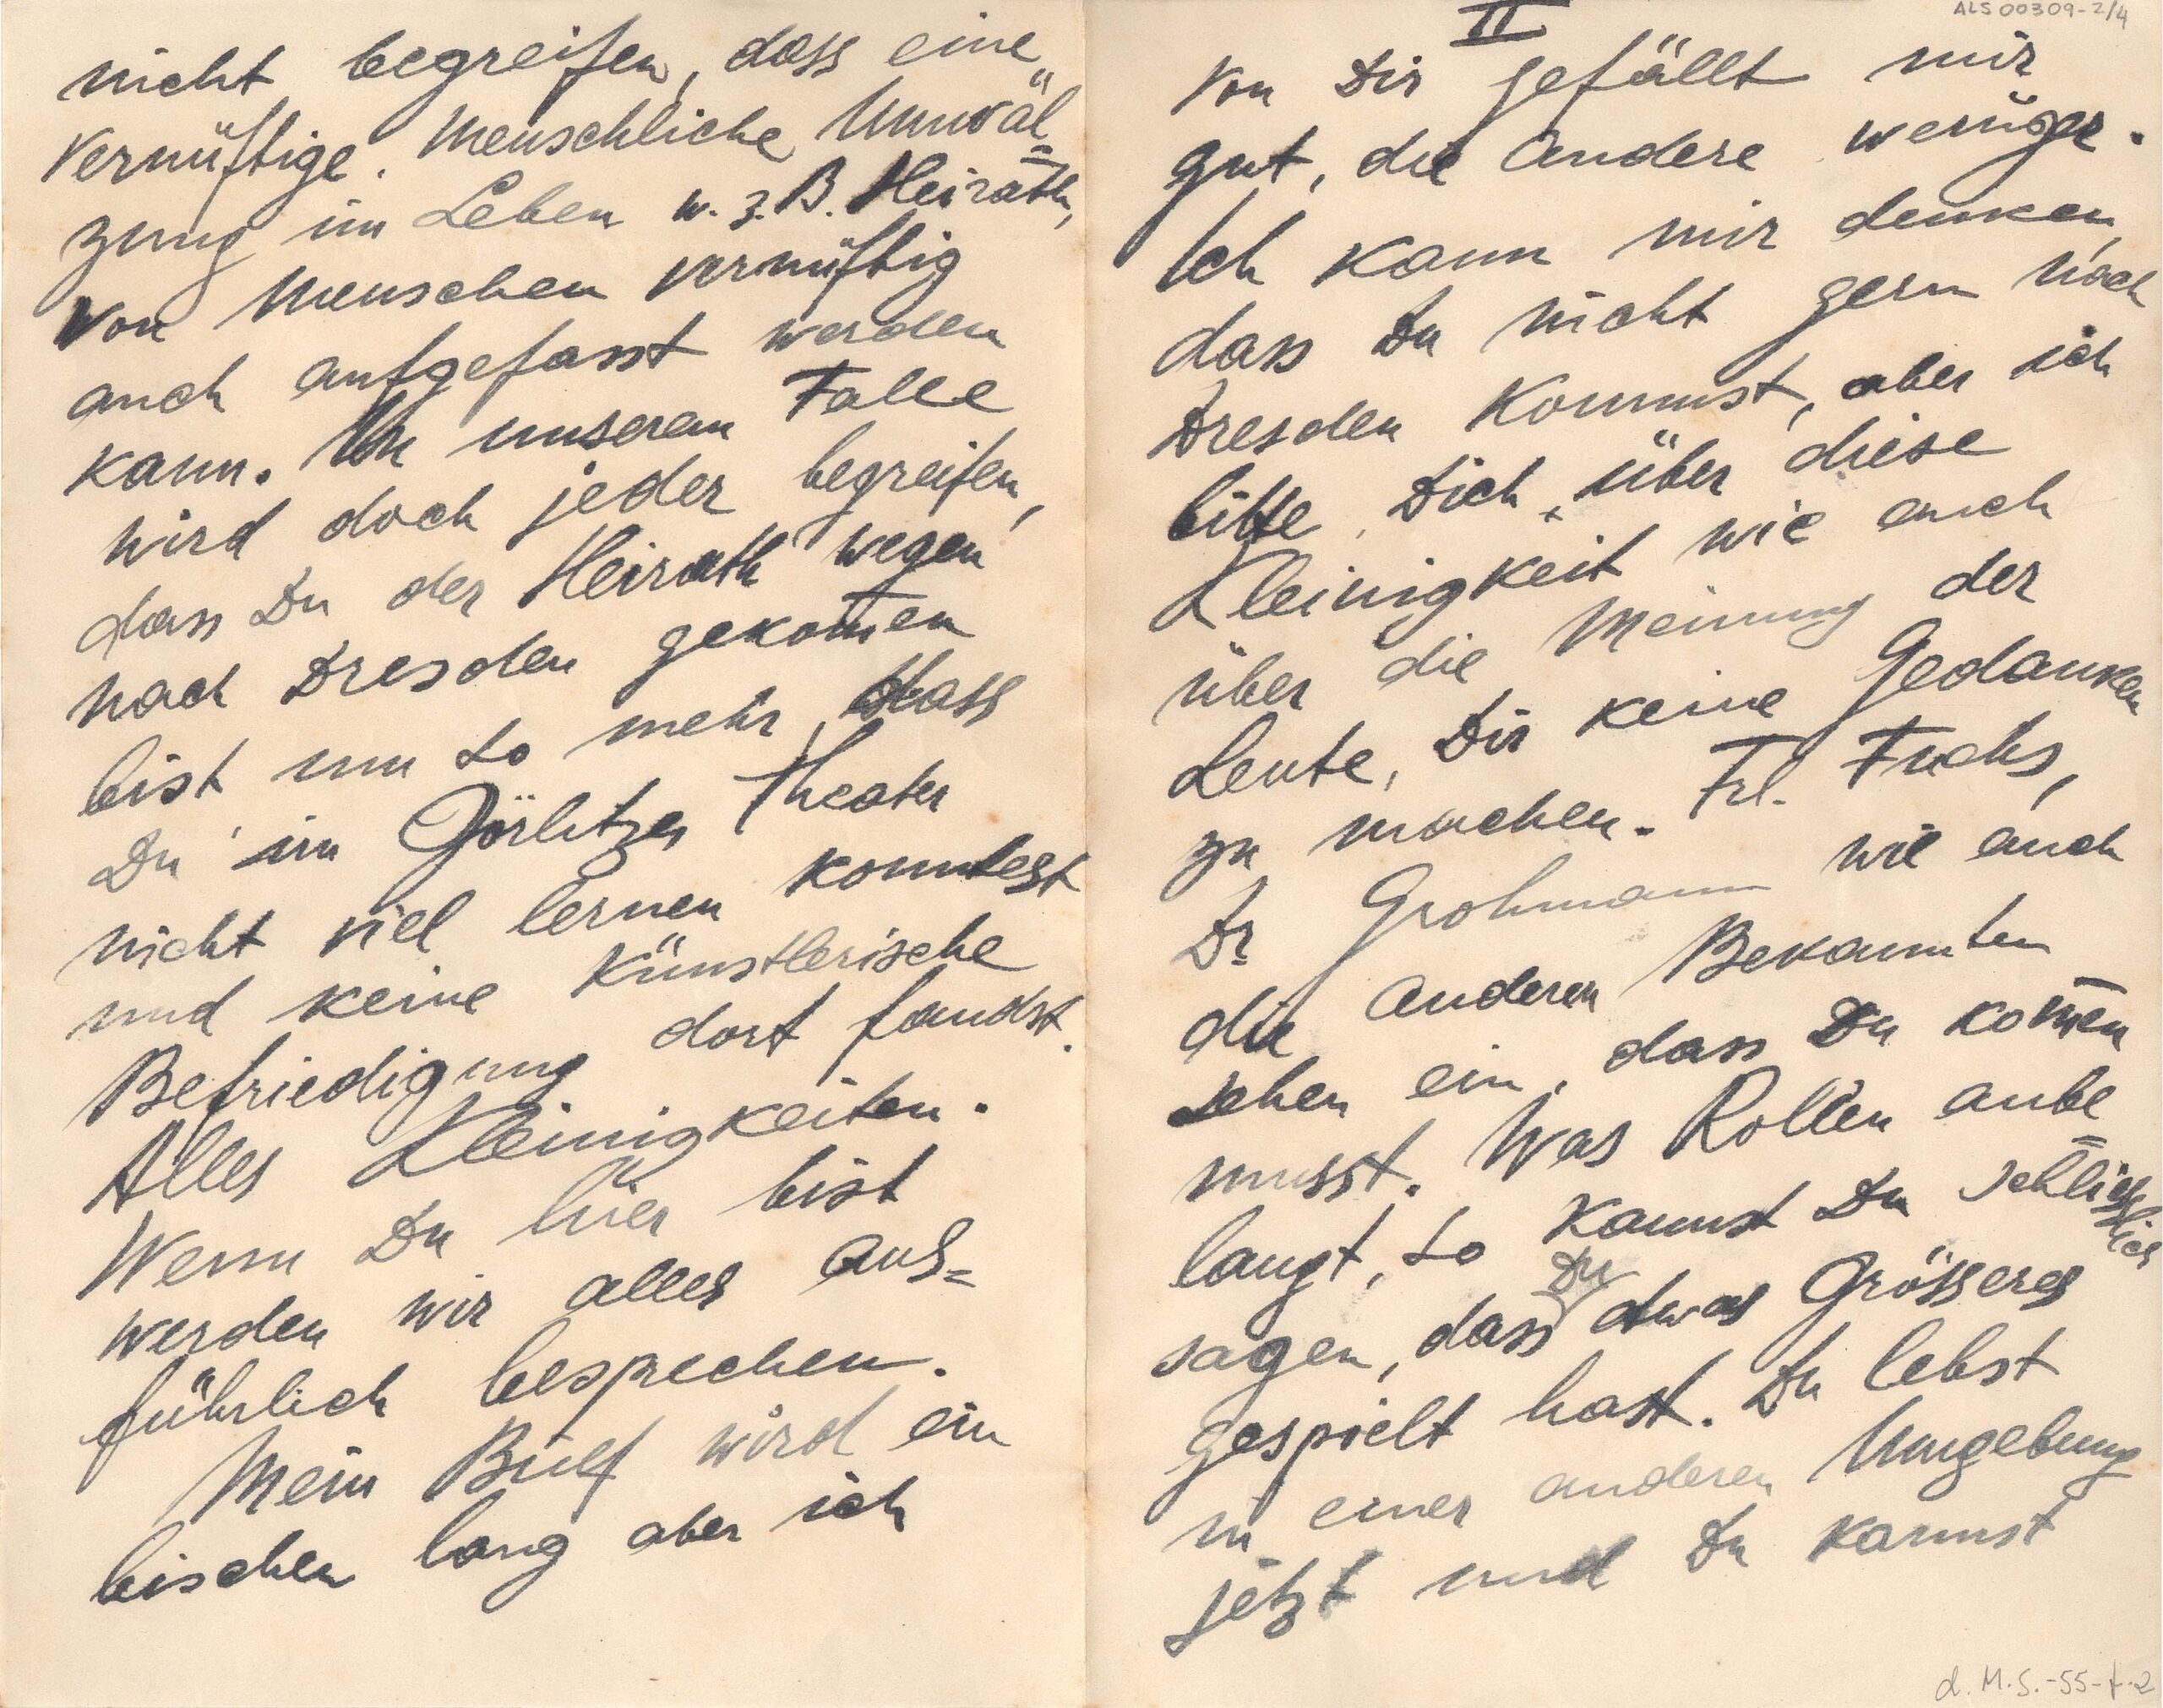 nicht begreifen, dass eine
vernüftige. menschliche Umwäl=
zung im Leben w. z. B. Heirath,
von Menschen vernüftig
auch aufgefasst werden
kann. In unserem Falle
wird doch jeder begreifen,
dass Du der Heirath wegen
nach Dresden gekom̅en
bist um so mehr, dass
Du im Görlitzer Theater
nicht viel lernen konntest
und keine künstlerische
Befriedigung dort fandst.
Alles Kleinigkeiten.
Wenn Du hier bist
werden wir alles aus=
führlich besprechen.
Mein Brief wird ein
bischen lang aber ich
ALS 00309-2/4
II
von Dir gefällt mir
gut, die andere weniger.
Ich kann mir denken,
dass Du nicht gern nach
Dresden kommst, aber ich
bitte Dich, über diese
Kleinigkeit wie auch
über die Meinung der
Leute, Dir keine Gedanken
zu machen. Frl. Fuchs,
Dr Grohmann wie auch
die anderen Bekannten
sehen ein, dass Du kom̅en
musst. Was Rollen anbe=
langt, so kannst Du schliesslich
sagen, dass Du etwas Grösseres
gespielt hast. Du lebst
in einer anderen Umgebung
jetzt und Du kannst
d. M. S.-55-f-2